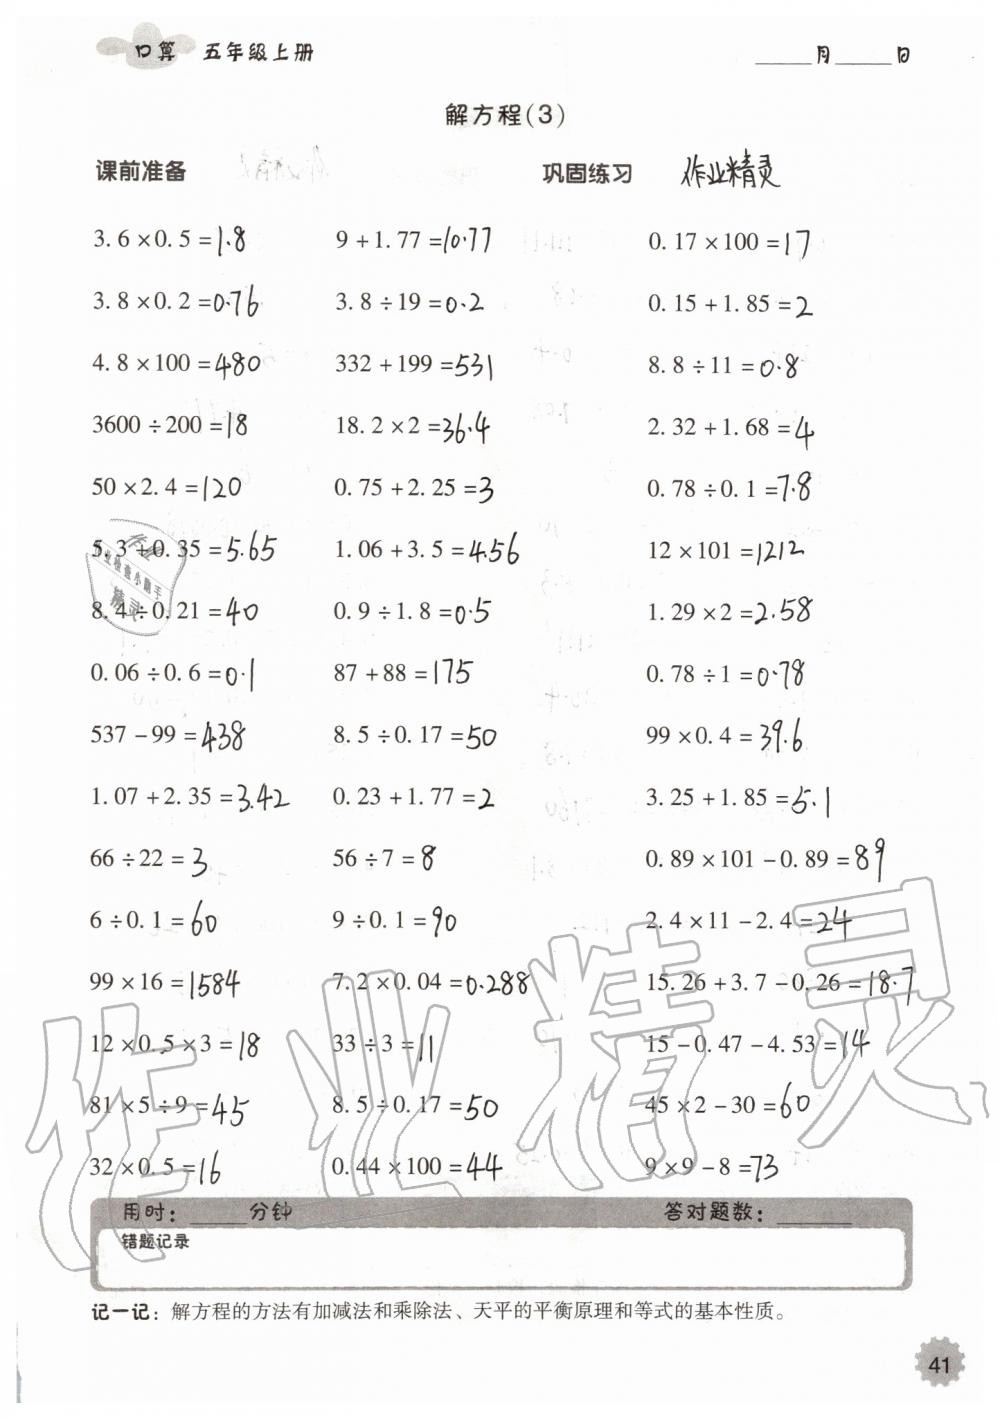 口算 五年级上册 ____月____日
解方程(3)
课前准备 巩固练习 作业精灵
3.6×0.5=1.8 9+1.77=10.77 0.17×100=17
3.8×0.2=0.76 3.8÷19=0.2 0.15+1.85=2
4.8×100=480 332+199=531 8.8÷11=0.8
3600÷200=18 18.2×2=36.4 2.32+1.68=4
50×2.4=120 0.75+2.25=3 0.78÷0.1=7.8
5.3+0.35=5.65 1.06+3.5=4.56 12×101=1212
8.4÷0.21=40 0.9÷1.8=0.5 1.29×2=2.58
0.06÷0.6=0.1 87+88=175 0.78÷1=0.78
537-99=438 8.5÷0.17=50 99×0.4=39.6
1.07+2.35=3.42 0.23+1.77=2 3.25+1.85=5.1
66÷22=3 56÷7=8 0.89×101-0.89=89
6÷0.1=60 9÷0.1=90 2.4×11-2.4=24
99×16=1584 7.2×0.04=0.288 15.26+3.7-0.26=18.7
12×0.5×3=18 33÷3=11 15-0.47-4.53=14
81×5÷9=45 8.5÷0.17=50 45×2-30=60
32×0.5=16 0.44×100=44 9×9-8=73
作业精灵
用时：____分钟 答对题数：____
错题记录
记一记：解方程的方法有加减法和乘除法、天平的平衡原理和等式的基本性质。
41